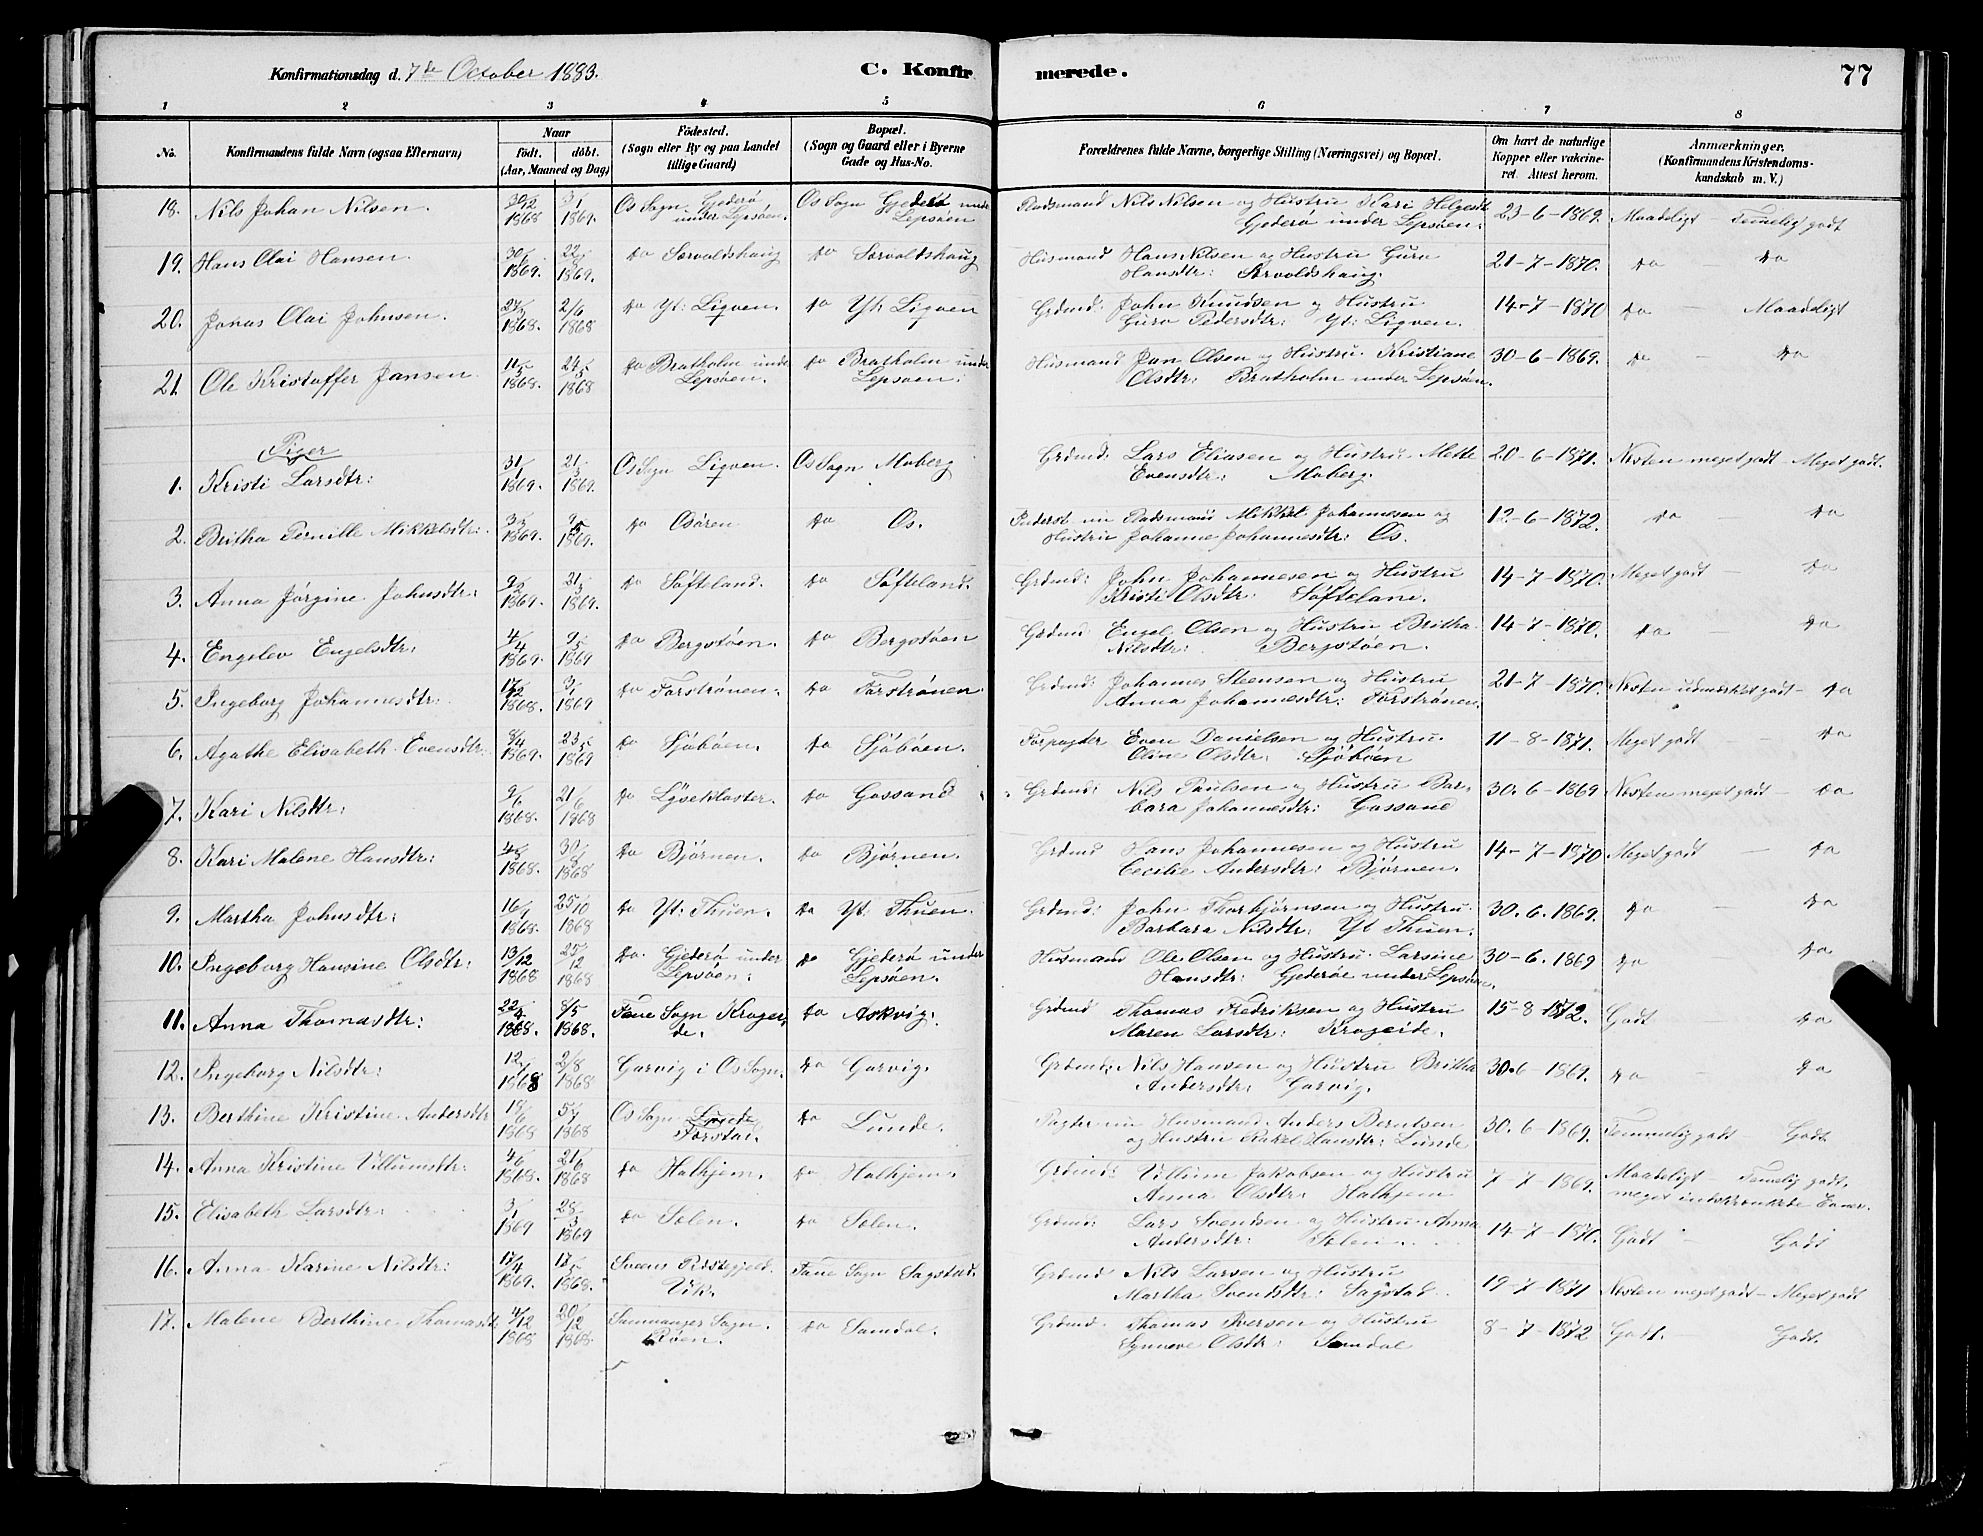 Konfirmationsdag d. 7de October 1883.
C. Konfirmerede.
77
1 2 3 4 5 6 7 8
No.
Konfirmandens fulde Navn (ogsaa Efternavn)
Naar
födt. döbt.
(Aar, Maaned og Dag)
Födested.
(Sogn eller By og paa Landet
tillige Gaard)
Bopæl.
(Sogn og Gaard eller i Byerne
Gade og Hus-No.
Forældrenes fulde Navne, borgerlige Stilling (Næringsvei) og Bopæl.
Om havt de naturlige
Kopper eller vakcine-
ret. Attest herom.
Anmærkninger.
(Konfirmandens Kristendoms-
kundskab m. V.)
18. Nils Johan Nilsen. 30/12 1868 3/1 1869. Os Sogn Gjederø under Lepsøen. Os Sogn Gjederø under Lepsøen Pladsmand Nils Nilsen og Hustru Kari Helgesdtr Gjederø under Lepsøen. 23-6-1869. Maadeligt - Temelig godt
19. Hans Olai Hansen. 1869. 1869. Do Sørvoldshaug Do Sørvoldshaug Husmand Hans Nilsen og Hustru Guro Hansdtr: Sørvoldshaug. 21-7-1870. Do - Do
20. Jonas Olai Johnsen. 1868. 2/6 1868 Do Yt: Ligven. Do Yt: Ligven Grdmd: John Knudsen og Hustru Guro Pedersdtr: Yt: Ligven. 14-7-1870 Do - Maadeligt
21. Ole Kristoffer Jansen 1868. 24/5 1868 Do Bratholm under Lepsøen. Do Bratholm under Lepsøen. Husmand Jan Olsen og Hustru Kristiane Olsdtr: Bratholm under Lepsøen. 30-6-1869. Do - Do
Piger
1. Kristi Larsdtr: 31/1 1869. 21/3 1869. Os Sogn Ligven. Os Sogn Moberg Grdmd: Lars Eliasen og Hustru Mette Evensdtr: Moberg. 20-6-1871. Næsten meget godt - Meget godt.
2. Britha Pernille Mikkelsdtr: 1869. 1869. Do Osøren Do Os. Inderst Pladsmand Mikkel Johannesen og Hustru Johanne Johannesdtr: Os. 12-6-1872. Do Do
3. Anna Jørgine Johnsdtr: 9/2 1869. 21/3 1869. Do Søfteland. Do Søfteland. Grdmd: John Johannesen og Hustru Kristi Olsdtr: Søfteland. 14-7-1870. Meget godt - Do
4. Engelev Engelsdtr: 4/4 1869. 9/5 1869 Do Bergstøen. Do Bergstøen Grdmd: Engel Olsen og Hustru Britha Nilsdtr: Bergstøen. 14-7-1870. Do Do
5. Ingeborg Johannesdtr: 17/12 1868. 3/1 1869 Do Forstrønen. Do Forstrønen. Grdmd: Johannes Steensen og Hustru Anna Johannesdtr: Forstrønen. 21-7-1870. Næsten udmærket godt - Do
6. Agathe Elisabeth Evensdtr 8/4 1869. 23/5 1869 Do Sjøbøen. Do Sjøbøen. Forpagter Even Danielsen og Hustru Oline Olsdtr: Sjøbøen 11-8-1871. Meget godt - Do
7. Kari Nilsdtr: 9/6 1868. 21/6 1868 Do Lysekloster. Do Gassand Grdmd: Nils Paulsen og Hustru Barbara Johannesdtr: Gassand 30-6-1869 Næsten meget godt - Do
8. Kari Malene Hansdtr: 4/8 1868. 30/8 1868 Do Bjørnen. Do Bjørnen. Grdmd Hans Johannesen og Hustru Cecilie Andersdtr: Bjørnen. 14-7-1870 Meget godt - Do
9. Martha Johnsdtr: 1868. 25/10 1868 Do Yt: Thuen. Do Yt: Thuen. Grdmd: John Thorbjørnsen og Hustru Barbara Nilsdtr: Yt Thuen. 30.6.1869. Do - Do
10. Ingeborg Hansine Olsdtr: 13/12 1868 25/12 1868 Do. Gjederø under Lepsøen: Do Gjederø under Lepsøen. Husmand Ole Olsen og Hustru Larsine Hansdtr: Gjederøe under Lepsøen. 30-6.1869 Do Do
11. Anna Thomasdtr: 22/4 1868. 8/5 1868. Fane Sogn Krogeide. Do Askvig. Grdmd Thomas Fredriksen og Hustru Maren Larsdtr: Krogeide. 15-8 1872. Godt Do
12. Ingeborg Nilsdtr: 12/7 1868 2/8 1868 Garvig i Os Sogn. Do Garvig. Grdmd: Nils Hansen og Hustru Britha Andersdtr: Garvig. 30.6-1869. Do - Do
13. Berthine Kristine Andersdtr 1868 5/7 1868 Os Sogn Lunde Forstad. Do Lunde. Husmand Anders Berntsen og Hustru Rakel Hansdtr: Lunde. 30.6-1869. Temmelig godt - Godt.
14. Anna Kristine Villumsdtr: 4/6 1868. 21/6 1868 Do Halhjem. Do Halhjem. Grdmd: Villum Jakobsen og Hustru Anna Olsdtr: Halhjem 7-7-1869. Maadeligt - Temelig godt, meget indskrænkede Evner.
15. Elisabeth Larsdtr: 3/1 1869 28/3 1869 Do Solen. Do Solen. Grdmd: Lars Svendsen og Hustru Anna Andersdtr: Solen. 14-7-1870. Godt - Godt
16. Anna Karine Nilsdtr: 17/4 1869. 1868. Præstegjeld. Vik. Fane Sogn Sagstad. Grdmd Nils Larsen og Hustru Martha Svendsdtr: Sagstad. 19-7-1871 Næsten meget godt - Meget godt
17. Malene Berthine Thomasdtr 4/12 1868 20/12 1868. Samnanger Sogn. Røen. Do Samdal. Grdmd. Thomas Iversen og Hustru Synneve Olsdtr: Samdal 8-7-1872 Godt. - Godt.